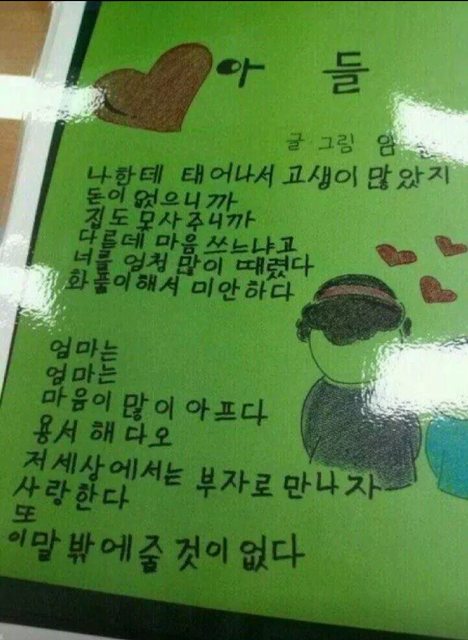 아들
글 그림 엄
나한테 태어나서 고생이 많았지
돈이 없으니까
집도 못사주니까
다른데 마음 쓰느냐고
너를 엄청 많이 때렸다
화풀이해서 미안하다
엄마는
엄마는
마음이 많이 아프다
용서해다오
저세상에서는 부자로 만나자
사랑한다
또
이말 밖에 줄 것이 없다